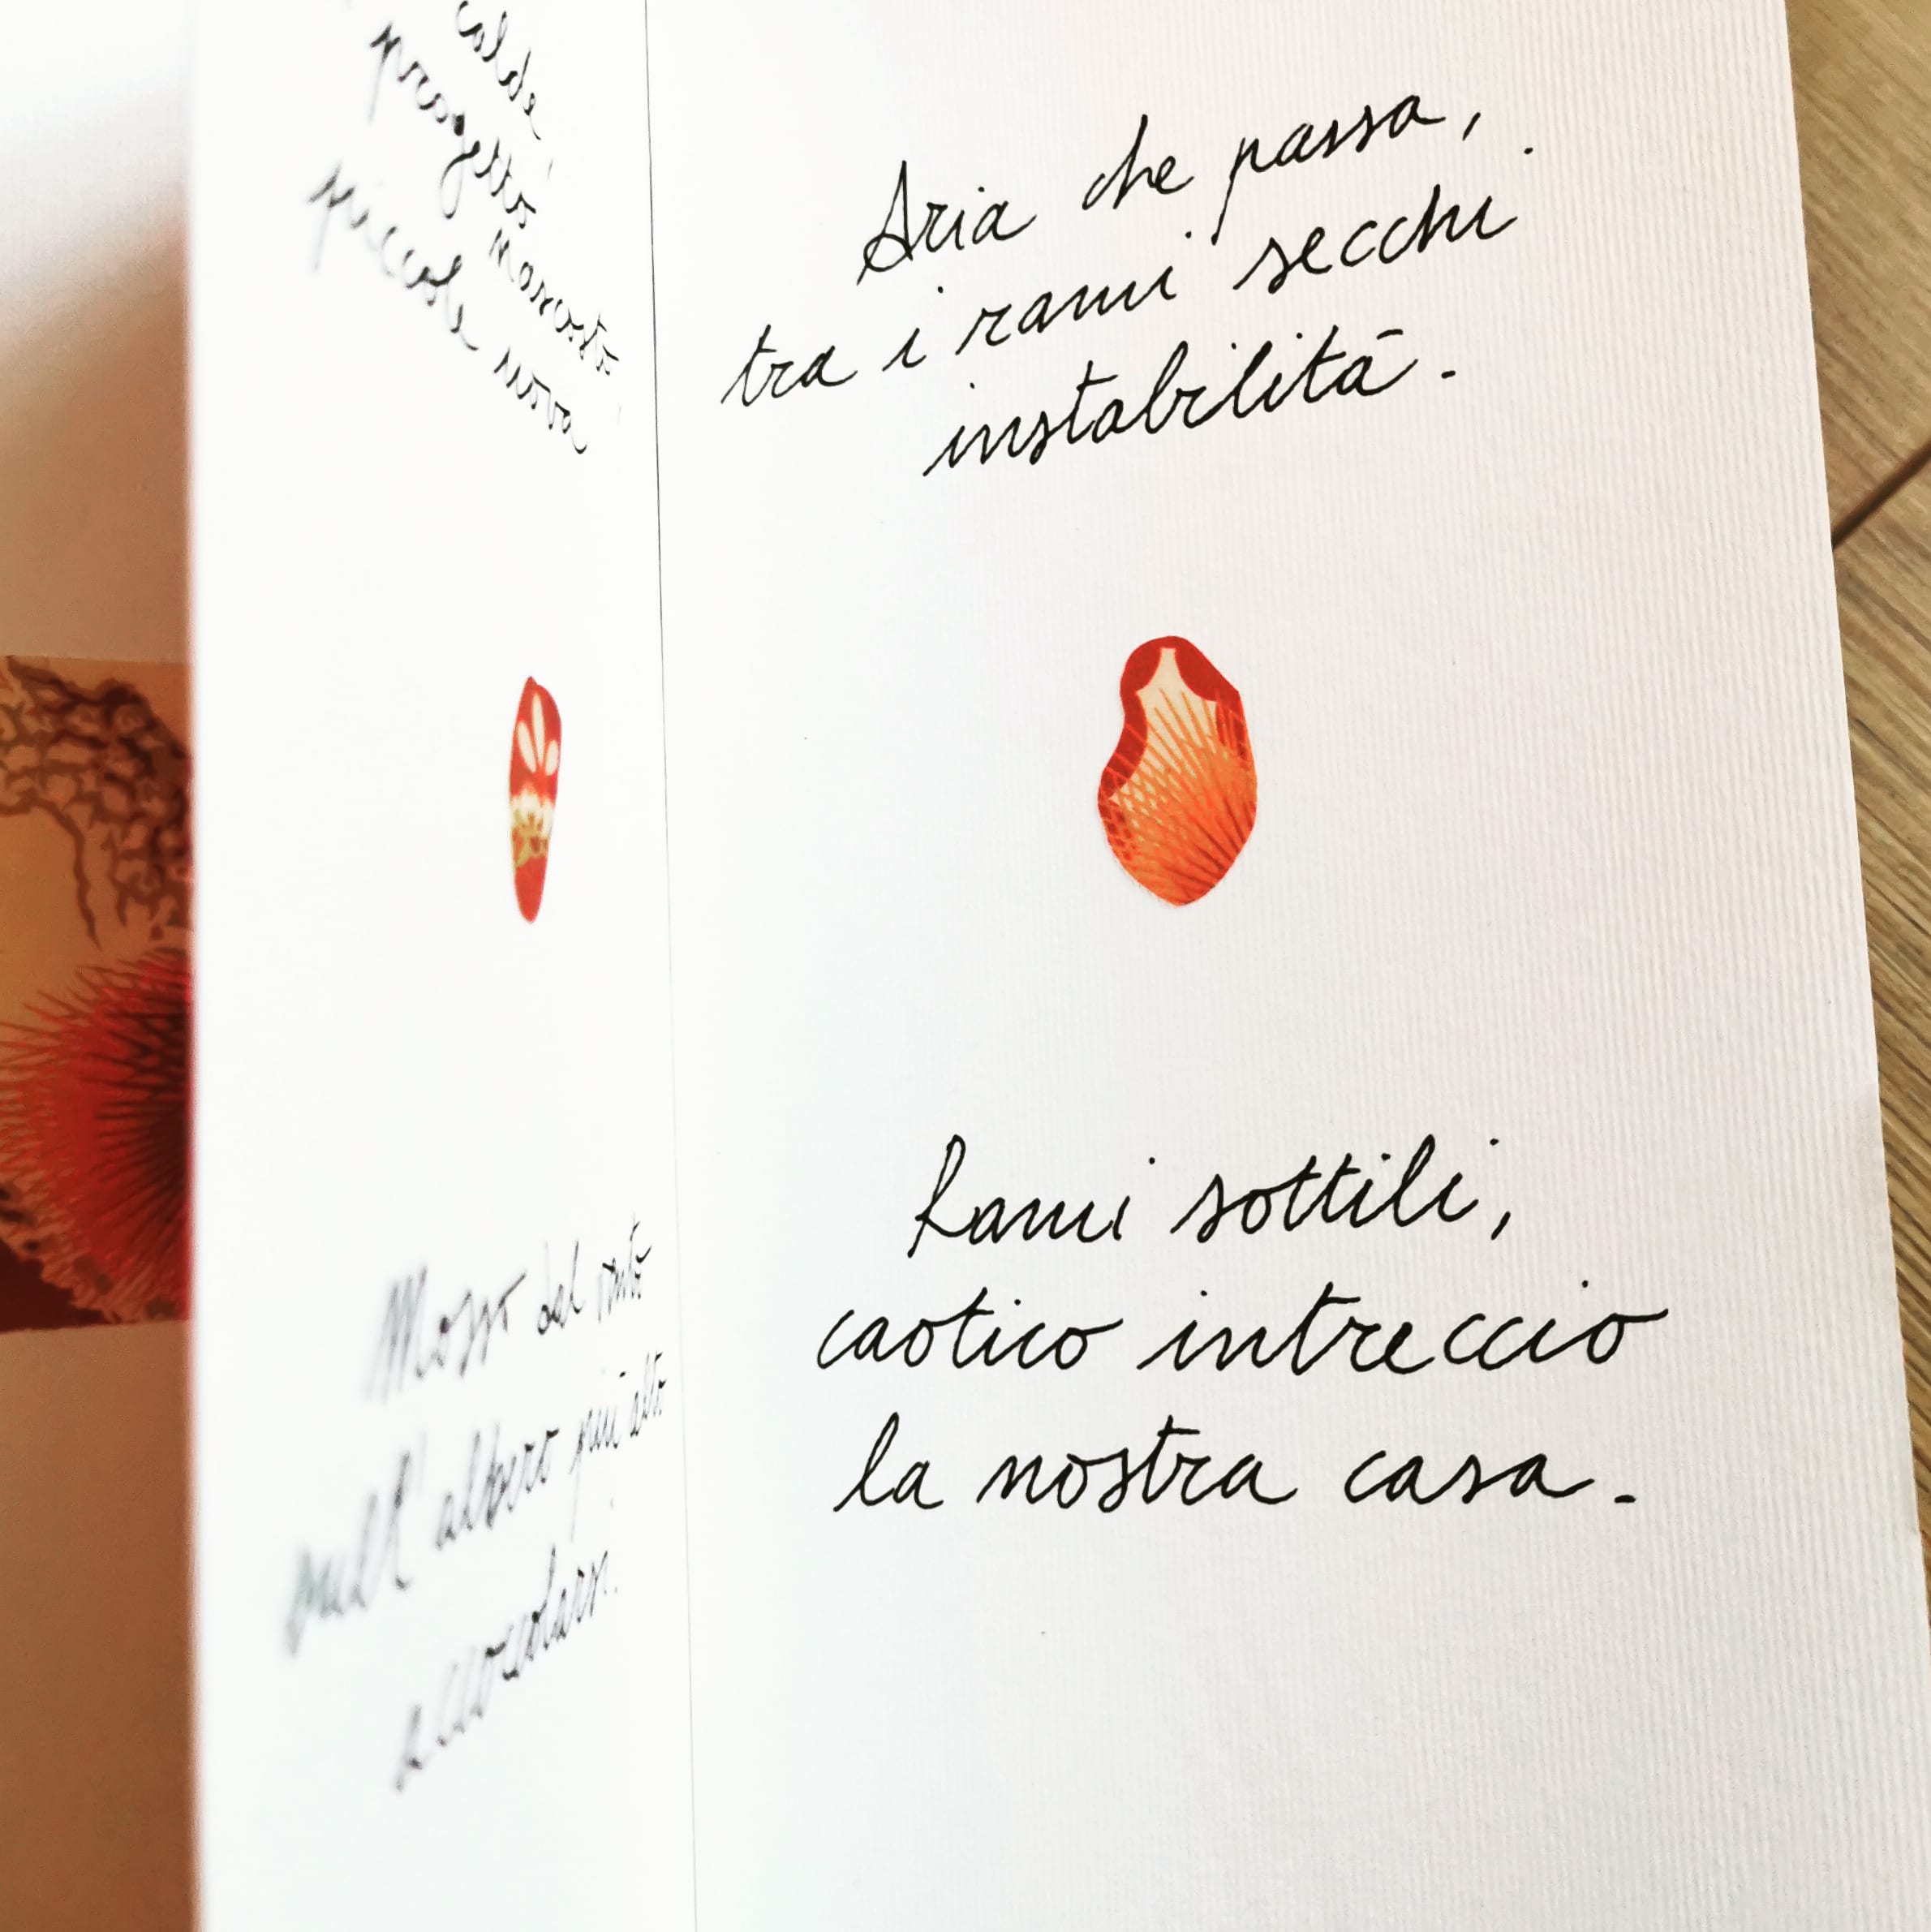 piccole uova
Mossi dal vento
sull'albero più alto
Aria che passa,
tra i rami secchi
instabilità.
Rami sottili,
caotico intreccio
la nostra casa.